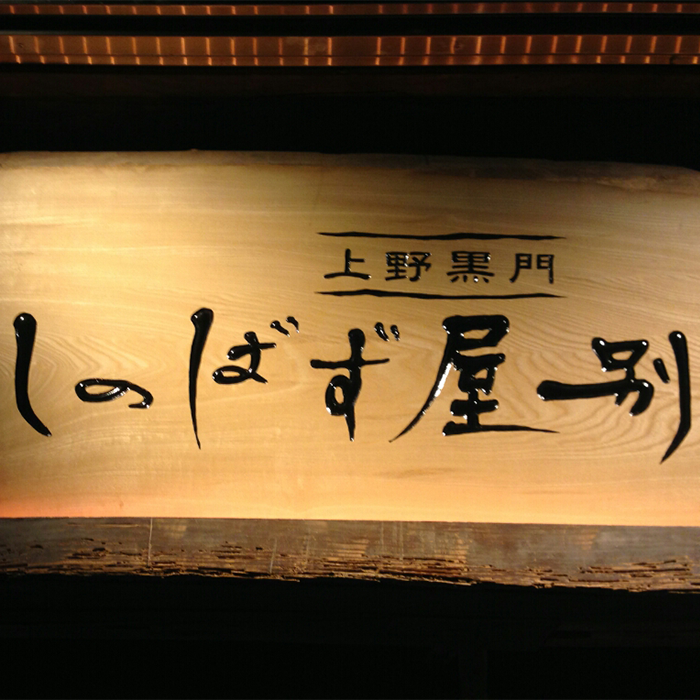 上野黒門
しのばず屋一別